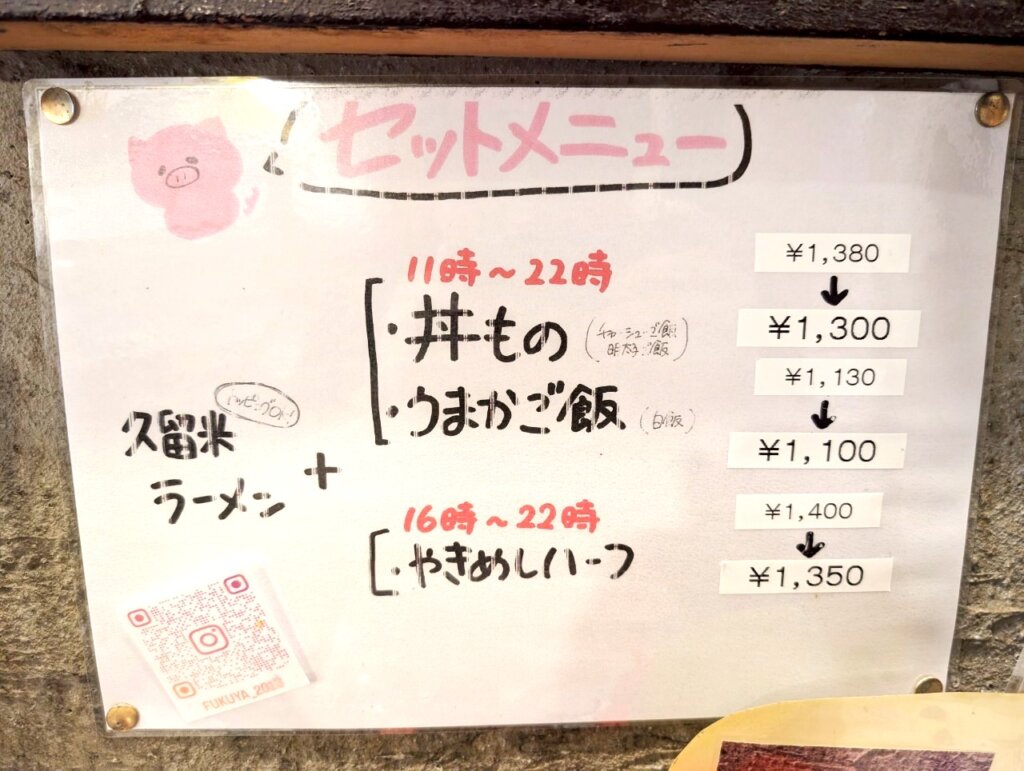 セットメニュー
11時～22時
・丼もの
(チャーシューご飯
明太子ご飯)
・うまかご飯 (白ご飯)
トッピングOK!
久留米
ラーメン
+
16時～22時
・やきめしハーフ
¥1,380
↓
¥1,300
¥1,130
↓
¥1,100
¥1,400
↓
¥1,350